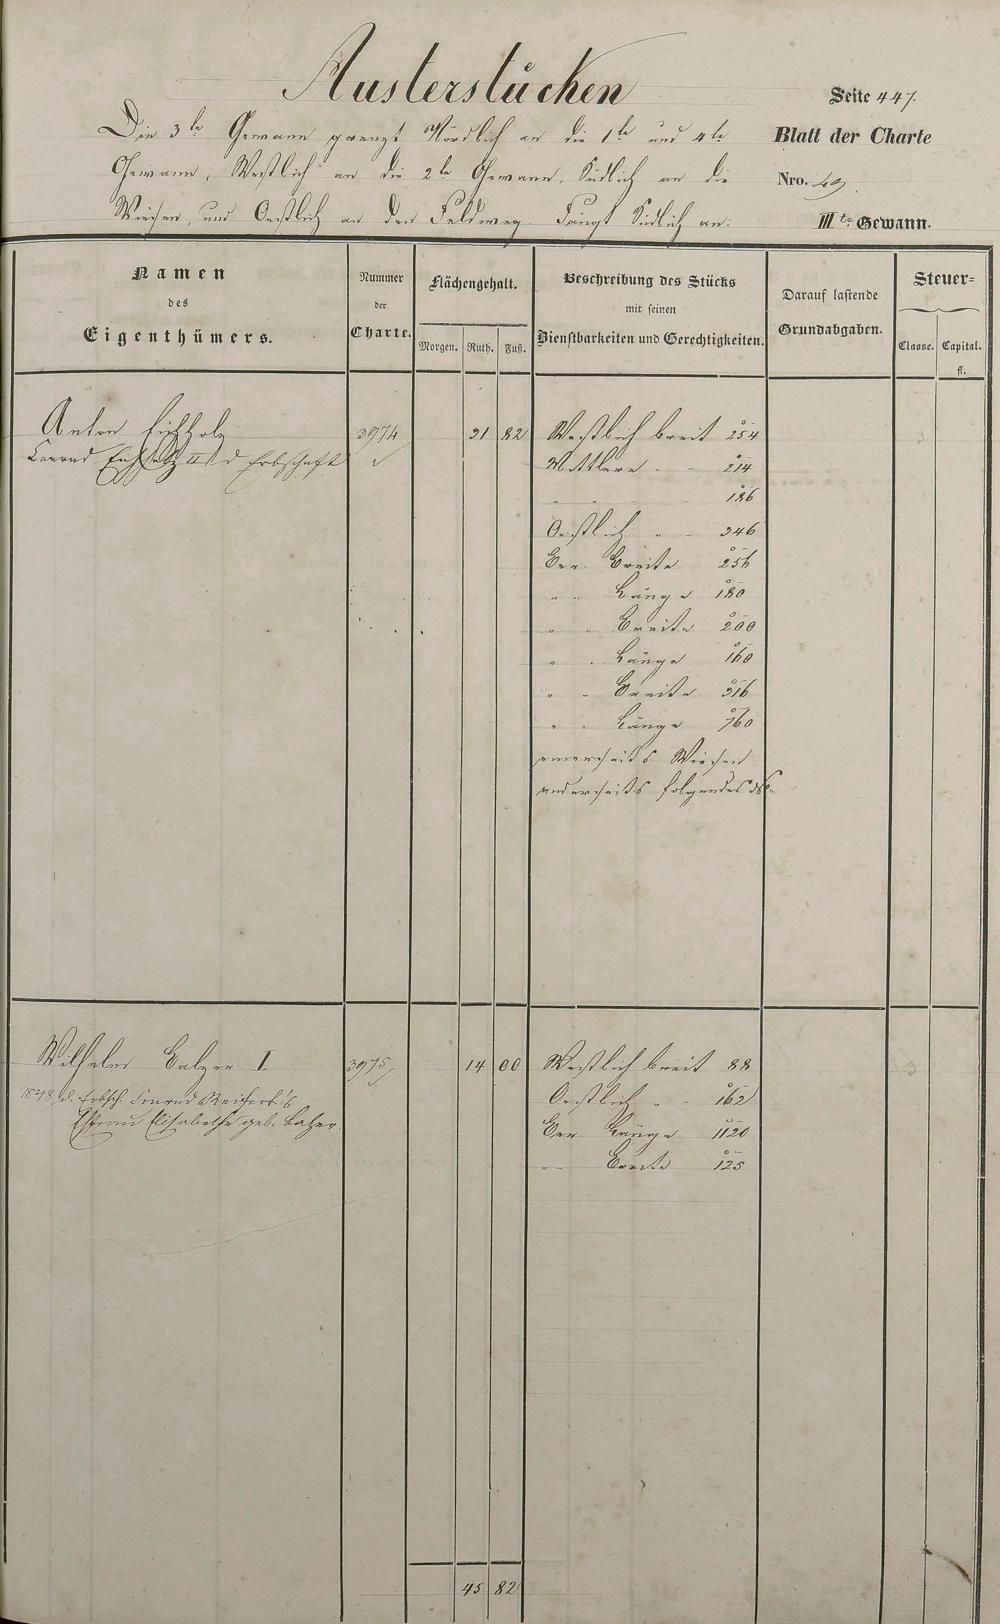 Austerstücken
Seite 447.
Die 3te Gewann grenzt Nördlich an die 1te und 4te
Blatt der Charte
Gewann, Westlich an die 2te Gewann, Südlich an die
Nro. 49.
Wiesen, und Oestlich an den Feldweg. Fängt Südlich an:
IIIte Gewann.
Namen
des
Eigenthümers.
Nummer
der
Charte.
Flächengehalt.
Morgen. Ruth. Fuß.
Beschreibung des Stücks
mit seinen
Dienstbarkeiten und Gerechtigkeiten.
Darauf lastende
Grundabgaben.
Steuer-
Classe. Capital.
fl.
Anton Eichholz 3974 31 82 Westlich breit 254 3
Conrad Eichholz II d Erbschaft " Mittlere " - 214
" " " 186
Oestlich " - 346
Ver. Breite 256
" " Länge 180
" " Breite 200
" " Länge 160
" " Breite 316
" " Länge 760
einerseits Wiesen
anderseits folgendes
Wilhelm Balzer I. 3975 14 00 Westlich breit 88 3
1848 d. Erbsch. Conrad Reichert's Oestlich " - 162
Ehefrau Elisabethe geb. Balzer. Ver. Länge 1120
" " Breite 125
45 82